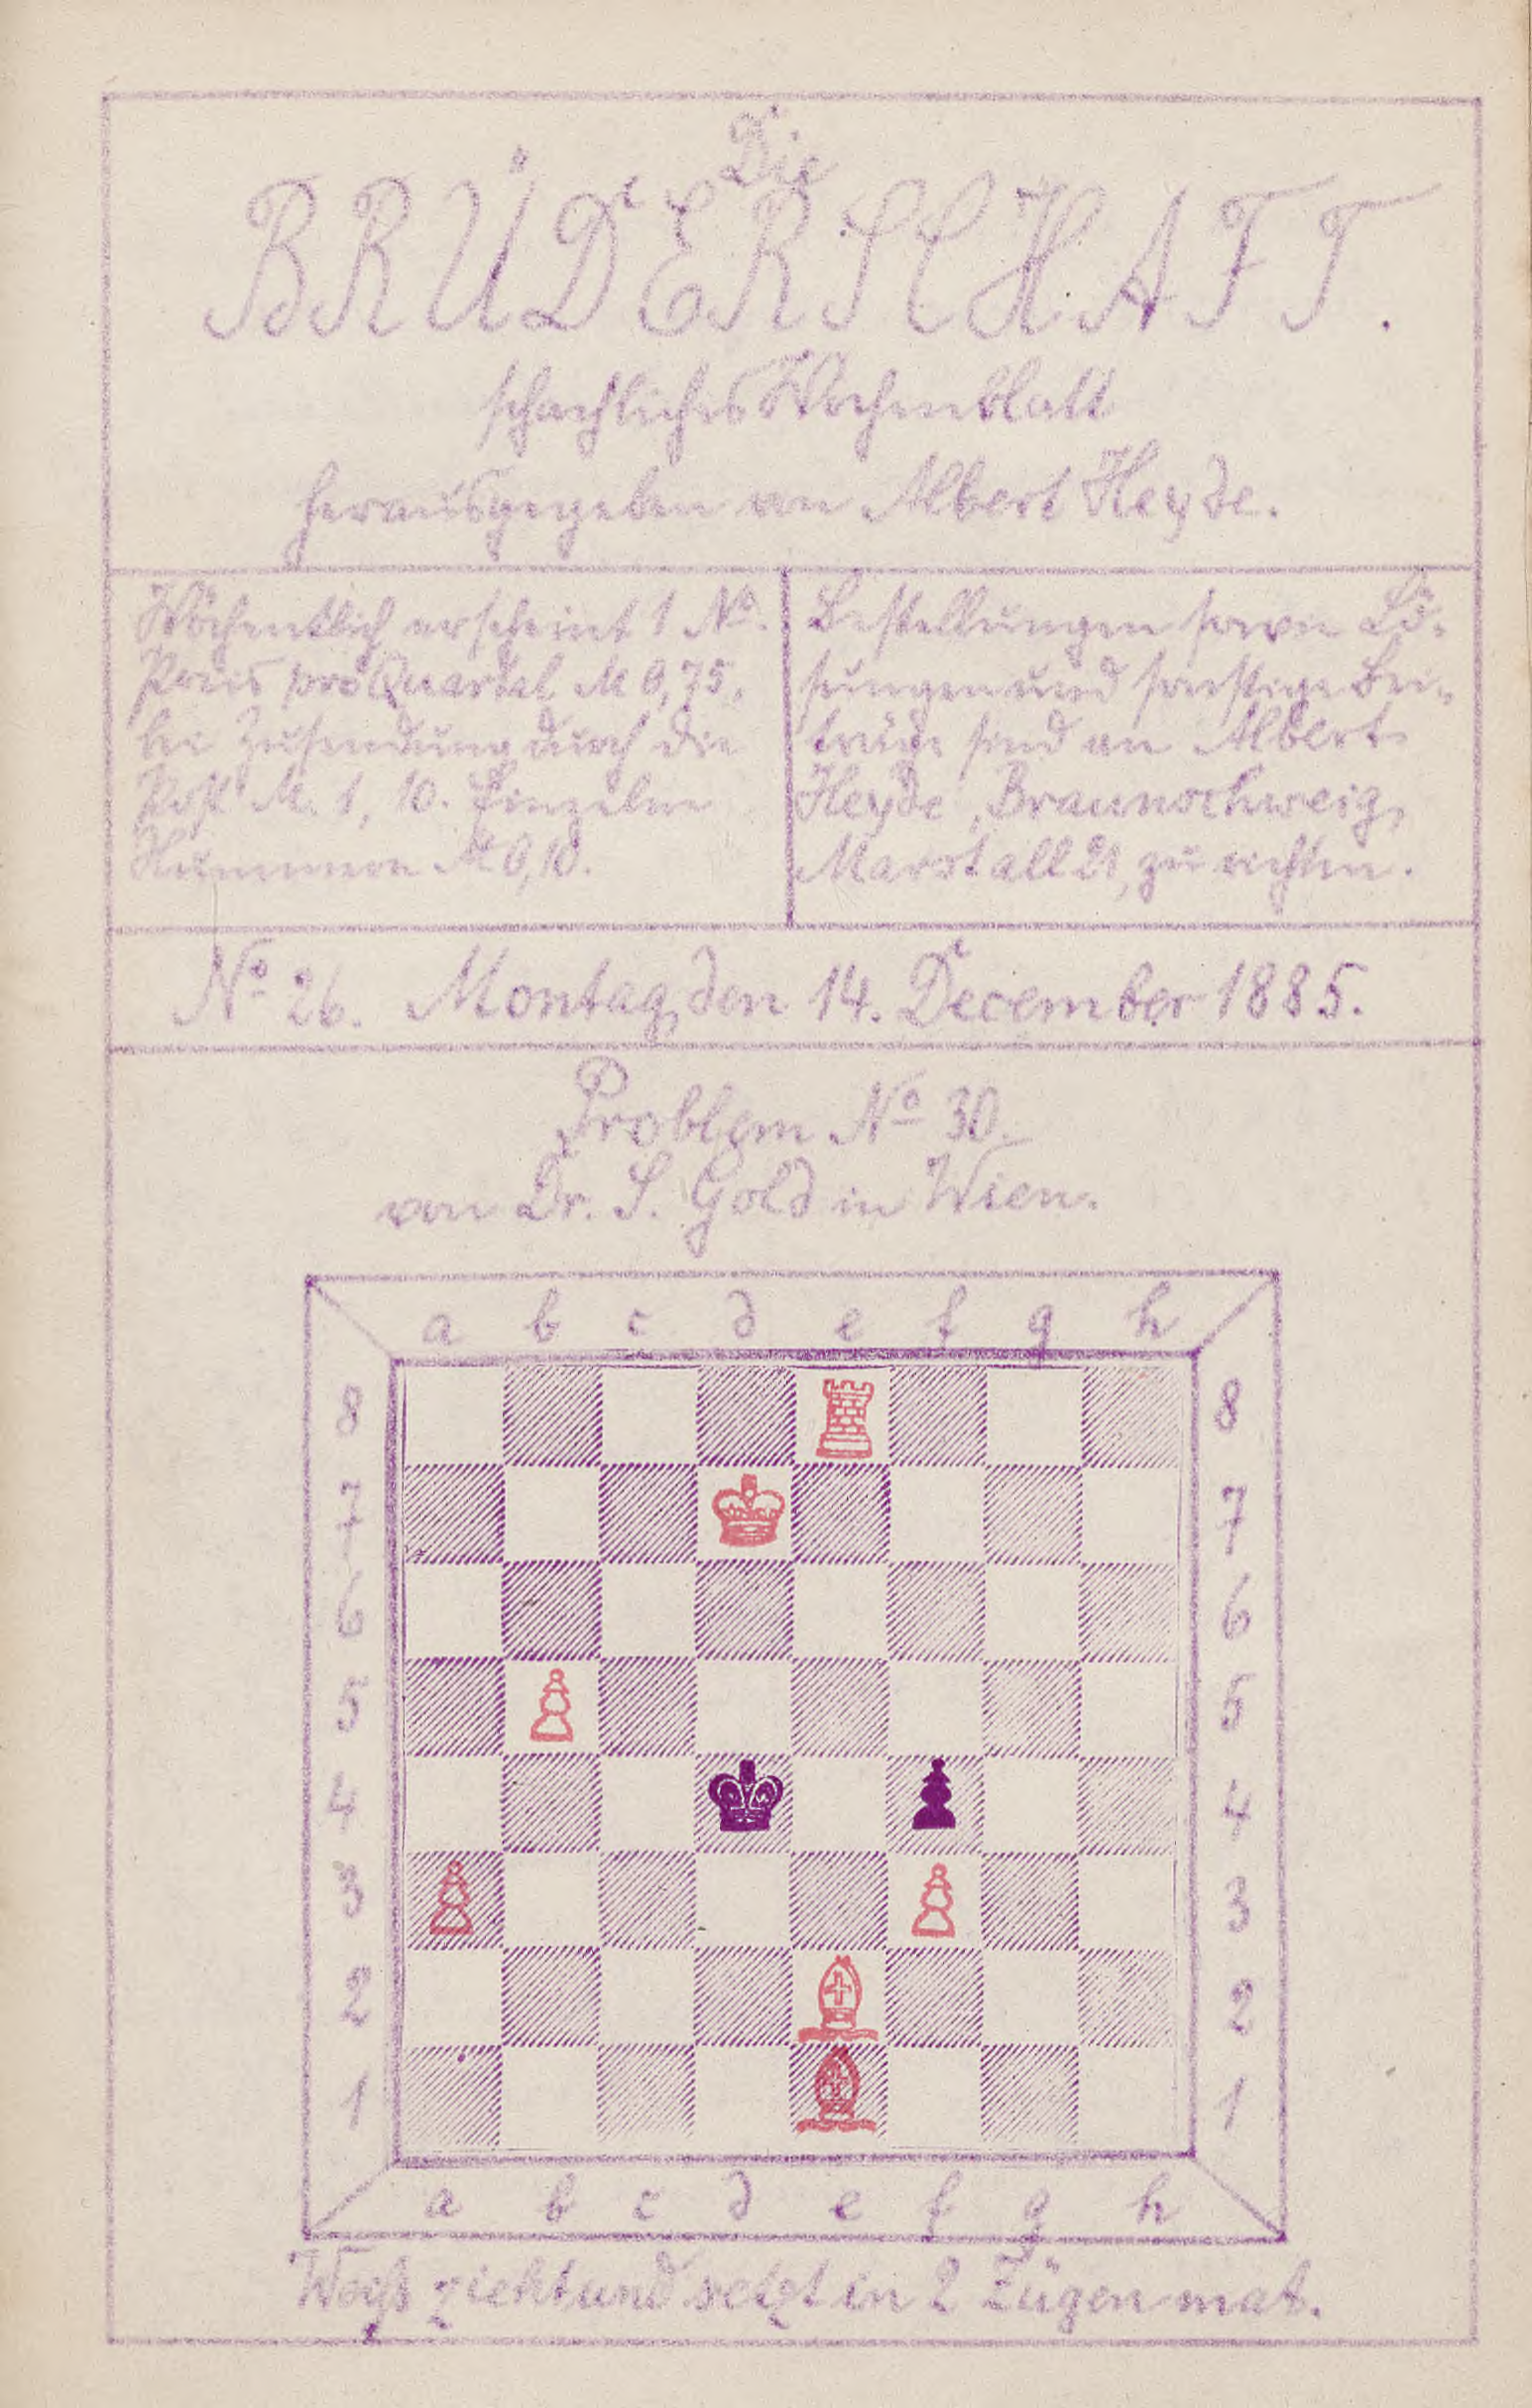 Die
BRÜDERSCHAFT.
schachliches Wochenblatt
herausgegeben von Albert Heyde.
Wöchentlich erscheint 1 No.
Preis pro Quartal M 0,75,
bei Zusendung durch die
Post M. 1, 10. Einzelne
Nummern M 0,10.
Bestellungen sowie Lö-
sungen und sonstige Bei-
träge sind an Albert
Heyde, Braunschweig,
Marstall 21, zu richten.
No 26. Montag, den 14. December 1885.
Problem No 30.
von Dr. S. Gold in Wien.
a b c d e f g h
8 8
7 7
6 6
5 5
4 4
3 3
2 2
1 1
a b c d e f g h
Weiß zieht und setzt in 2 Zügen mat.